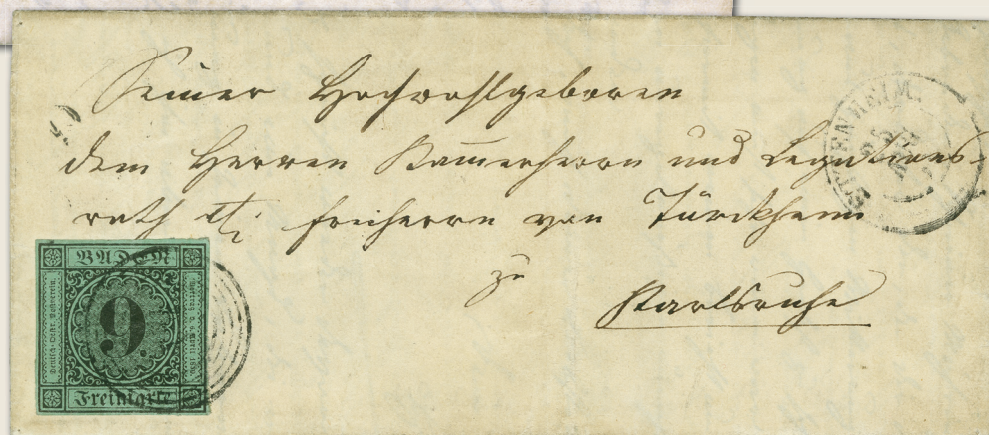 Seiner Hochwohlgeboren
dem Herren Kammerherrn und Legations-
rath etc. Freiherrn von Türckheim
zu
Karlsruhe
ETTENHEIM.
25
BADEN
9.
Freimarke
Deutsch-Oestr. Postverein.
Vertrag v. 6. April 1850.